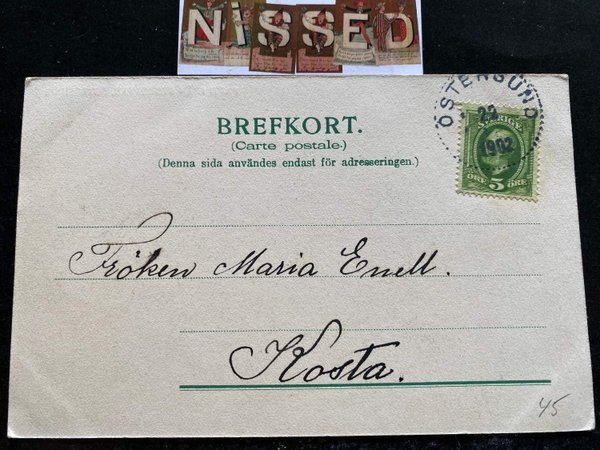 NiSSED
BREFKORT.
(Carte postale.)
(Denna sida användes endast för adresseringen.)
ÖSTERSUND
22
1902
SVERIGE
ÖRE 5 ÖRE
Fröken Maria Enell.
Kosta.
45